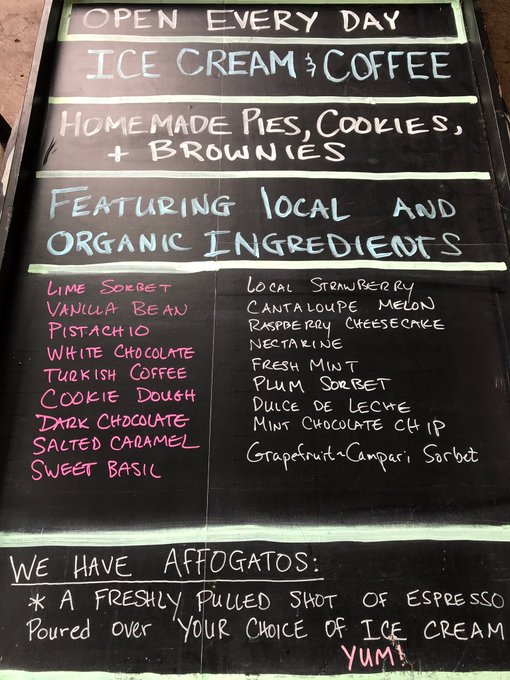 OPEN EVERY DAY
ICE CREAM & COFFEE
HOMEMADE PIES, COOKIES,
+ BROWNIES
FEATURING LOCAL AND
ORGANIC INGREDIENTS
LIME SORBET
VANILLA BEAN
PISTACHIO
WHITE CHOCOLATE
TURKISH COFFEE
COOKIE DOUGH
DARK CHOCOLATE
SALTED CARAMEL
SWEET BASIL
LOCAL STRAWBERRY
CANTALOUPE MELON
RASPBERRY CHEESECAKE
NECTARINE
FRESH MINT
PLUM SORBET
DULCE DE LECHE
MINT CHOCOLATE CHIP
Grapefruit~Campari Sorbet
WE HAVE AFFOGATOS:
* A FRESHLY PULLED SHOT OF ESPRESSO
Poured over YOUR CHOICE OF ICE CREAM
YUM!